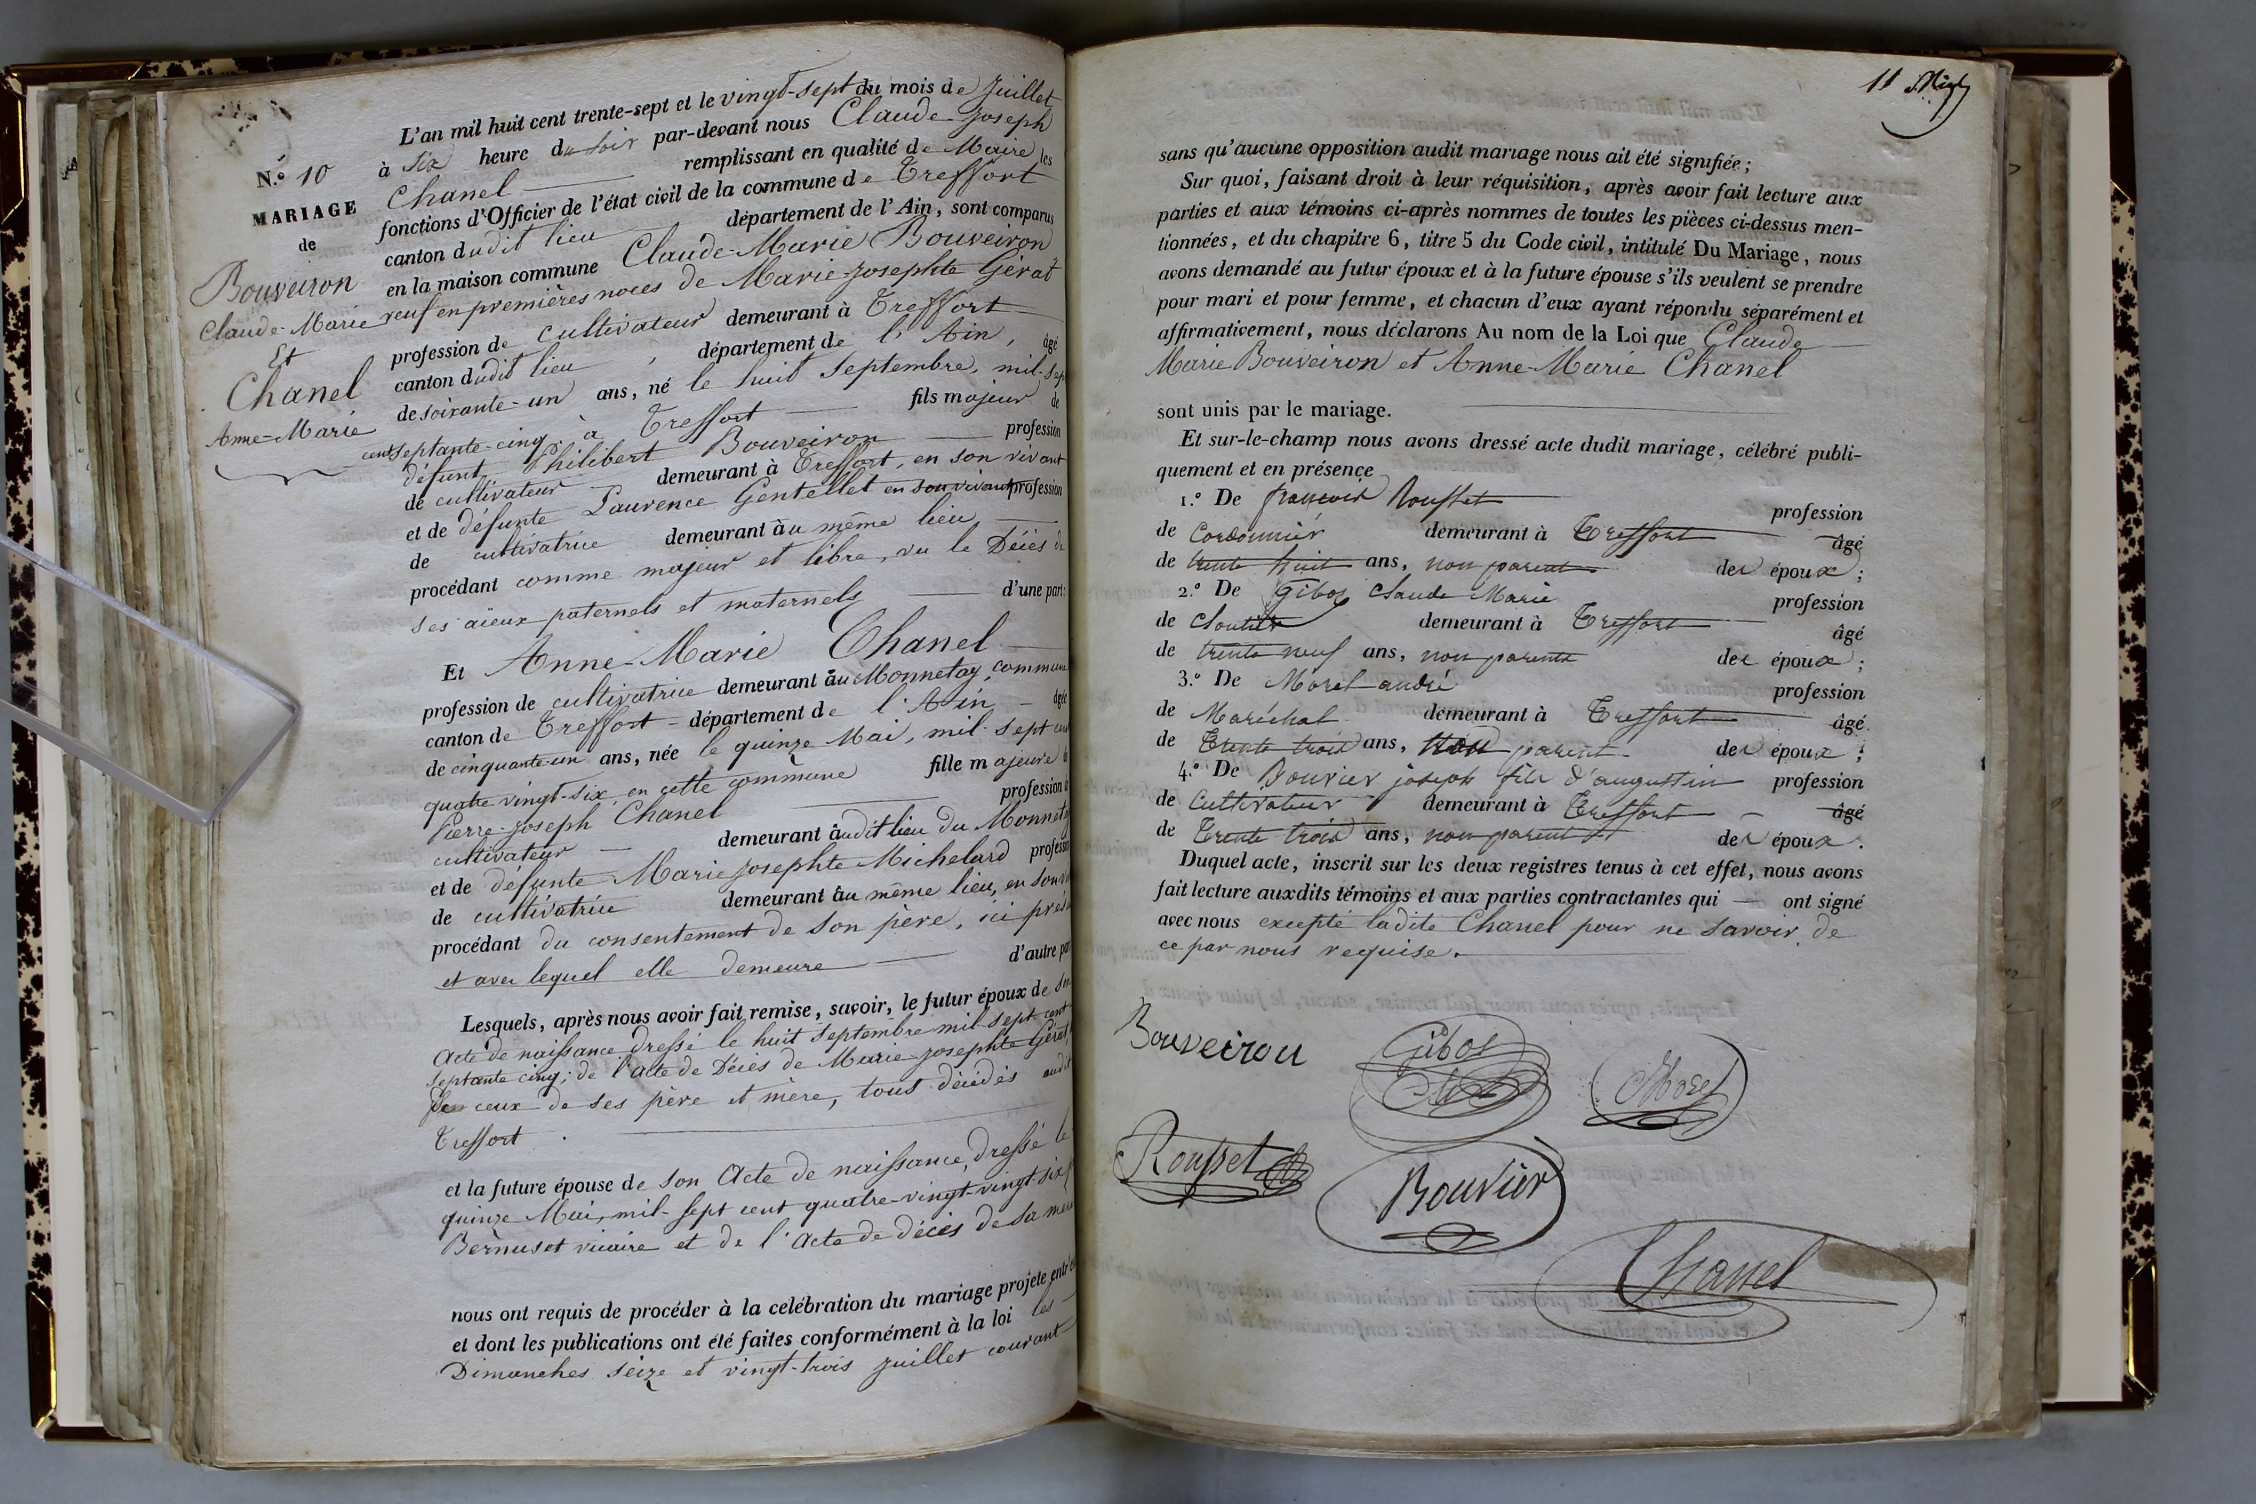 N.º 10
MARIAGE
de
Bouveiron
Claude-Marie
Et
Chanel
Anne-Marie
L'an mil huit cent trente-sept et le vingt-sept du mois de Juillet
à six heure du soir par-devant nous Claude-Joseph
Chanel remplissant en qualité de Maire les
fonctions d'Officier de l'état civil de la commune de Treffort
canton dudit lieu département de l'Ain, sont comparus
en la maison commune Claude-Marie Bouveiron
veuf en premières noces de Marie-Josephte Gérat
profession de cultivateur demeurant à Treffort
canton dudit lieu, département de l'Ain, âgé
de soixante-un ans, né le huit Septembre, mil-sept
cent septante-cinq, à Treffort fils majeur de
défunt Philibert Bouveiron profession
de cultivateur demeurant à Treffort, en son vivant
et de défunte Laurence Gentellet en son vivant profession
de cultivatrice demeurant au même lieu
procédant comme majeur et libre, vu le Décès de
ses aïeux paternels et maternels d'une part:
Et Anne-Marie Chanel
profession de cultivatrice demeurant au Monnetay, commune
canton de Treffort département de l'Ain âgée
de cinquante-un ans, née le quinze Mai, mil-sept cent
quatre vingt-six, en cette commune fille majeure de
Pierre-Joseph Chanel profession de
cultivateur demeurant audit lieu du Monnetay
et de défunte Marie Josephte Michelard profession
de cultivatrice demeurant au même lieu, en son
procédant du consentement de son père, ici
et avec lequel elle demeure d'autre part
Lesquels, après nous avoir fait remise, savoir, le futur époux de son
Acte de naissance dressé le huit septembre mil sept cent
septante cinq; de l'acte de Décès de Marie-Josephte Gérat,
de ceux de ses père et mère, tous décédés audit
Treffort.
et la future épouse de son Acte de naissance, dressé le
quinze Mai, mil-sept cent quatre-vingt-vingt-six
Bernuset vicaire et de l'Acte de décès de sa mère
nous ont requis de procéder à la celébration du mariage projeté entr'eux
et dont les publications ont été faites conformément à la loi les
Dimanches seize et vingt-trois Juillet courant
11
sans qu'aucune opposition audit mariage nous ait été signifiée;
Sur quoi, faisant droit à leur réquisition, après avoir fait lecture aux
parties et aux témoins ci-après nommes de toutes les pièces ci-dessus men-
tionnées, et du chapitre 6, titre 5 du Code civil, intitulé Du Mariage, nous
avons demandé au futur époux et à la future épouse s'ils veulent se prendre
pour mari et pour femme, et chacun d'eux ayant répondu séparément et
affirmativement, nous déclarons Au nom de la Loi que Claude
Marie Bouveiron et Anne-Marie Chanel
sont unis par le mariage.
Et sur-le-champ nous avons dressé acte dudit mariage, célébré publi-
quement et en présence
1.º De françois Rousset profession
de Cordonnier demeurant à Treffort âgé
de trente huit ans, non parent des époux;
2.º De Gibos Claude Marie profession
de Cloutier demeurant à Treffort âgé
de trente neuf ans, non parent des époux;
3.º De Morel andré profession
de Maréchal demeurant à Treffort âgé
de Trente trois ans, non parent des époux;
4.º De Bouvier joseph fils d'augustin profession
de Cultivateur demeurant à Treffort âgé
de Trente trois ans, non parent des époux.
Duquel acte, inscrit sur les deux registres tenus à cet effet, nous avons
fait lecture auxdits témoins et aux parties contractantes qui ont signé
avec nous excepté ladite Chanel pour ne savoir, de
ce par nous requise.
Bouveirou
Gibos
Morel
Rousset
Bouvier
Chanel